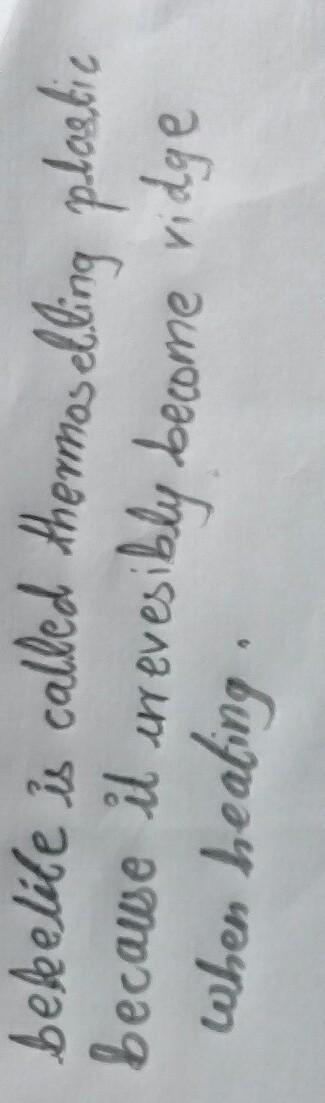 bekelite is called thermosetting plastic
because it irrevesibly become ridge
when heating.